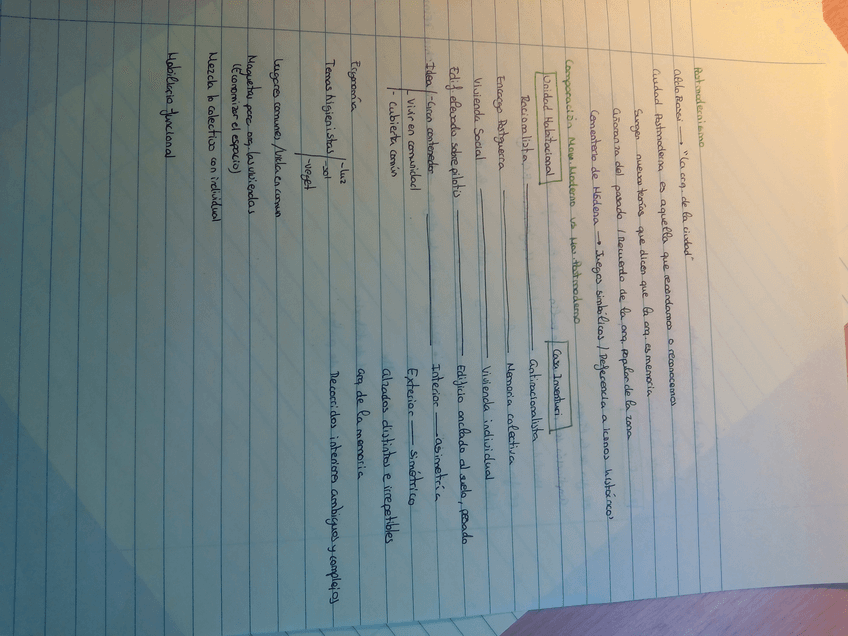 Postmodernismo
Aldo Rossi → "La arq. de la ciudad"
Ciudad Postmoderna es aquella que recordamos o reconocemos
Surgen nuevas teorías que dicen que la arq. es memoria
Añoranza del pasado / Recuerdo de la arq. popular de la zona
Cementerio de Módena → Juegos simbólicos / Referencia a iconos históricos
Comparación Mov. Moderno vs Mov. Postmoderno
Unidad Habitacional Casa Venturi
Racionalista Antiracionalista
Encargo Postguerra Memoria colectiva
Vivienda Social Vivienda individual
Edif. elevado sobre pilotis Edificio anclado al suelo, pesado
Idea - Gran contenedor Interior — asimetría
- Vivir en comunidad Exterior — simétrico
- Cubierta común Alzados distintos e irrepetibles
Ergonomía Arq de la memoria
Temas higienistas - luz Recorridos interiores ambiguos y complejos
- sol
- veget
Lugares comunes / vida en común
Maqueta para org. las viviendas
(Economizar el espacio)
Mezcla lo colectivo con individual
Mobiliario funcional